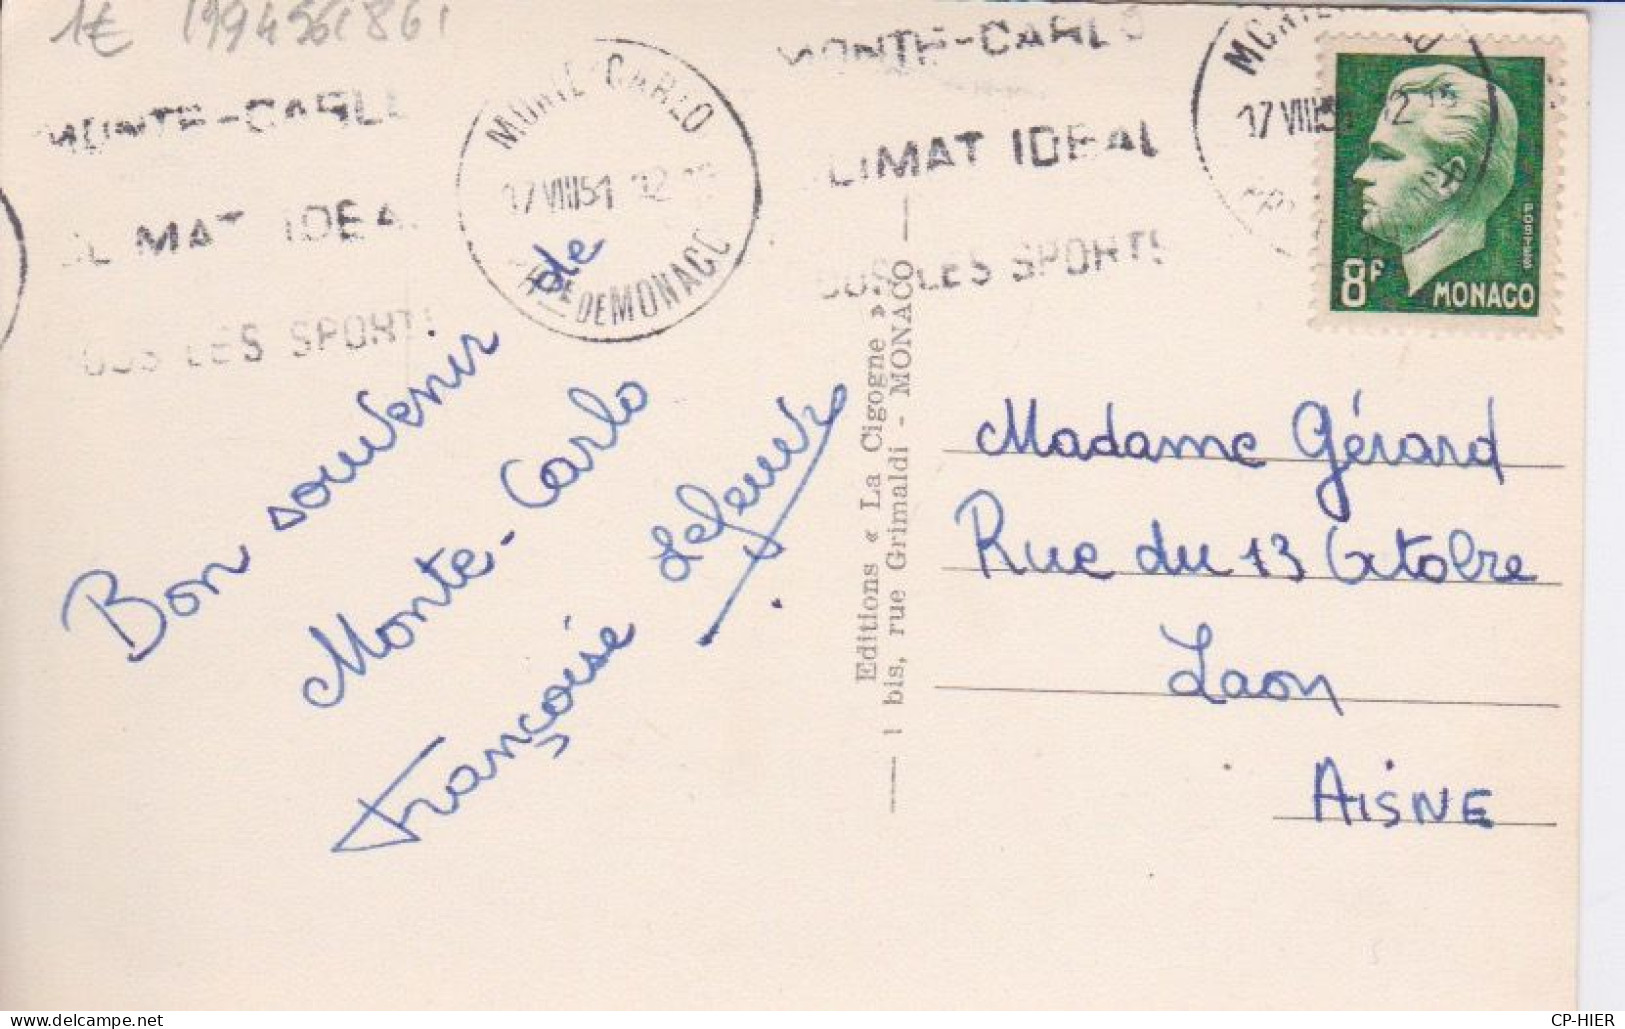 1€ 199456186
MONTE-CARLO
CLIMAT IDEAL
TOUS LES SPORTS
MONTE CARLO
17 VIII 51 12
DE MONACO
MONTE-CARLO
CLIMAT IDEAL
TOUS LES SPORTS
17 VIII 51 12 15
POSTES
8F MONACO
Bon souvenir de
Monte-Carlo
Françoise
Editions « La Cigogne »
1 bis, rue Grimaldi - MONACO
Madame Gérard
Rue du 13 Octobre
Laon
AisNE
Delcampe.net
CP-HIER